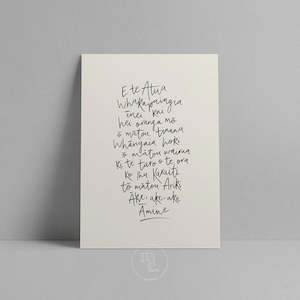 E te Atua
Whakapaingia
ēnei kai
hei oranga mō
ō mātou tinana
Whāngaia hoki
ō mātou wairua
ki te taro o te ora
ko Ihu Karaiti
tō mātou Ariki
Āke, ake, ake
Āmine